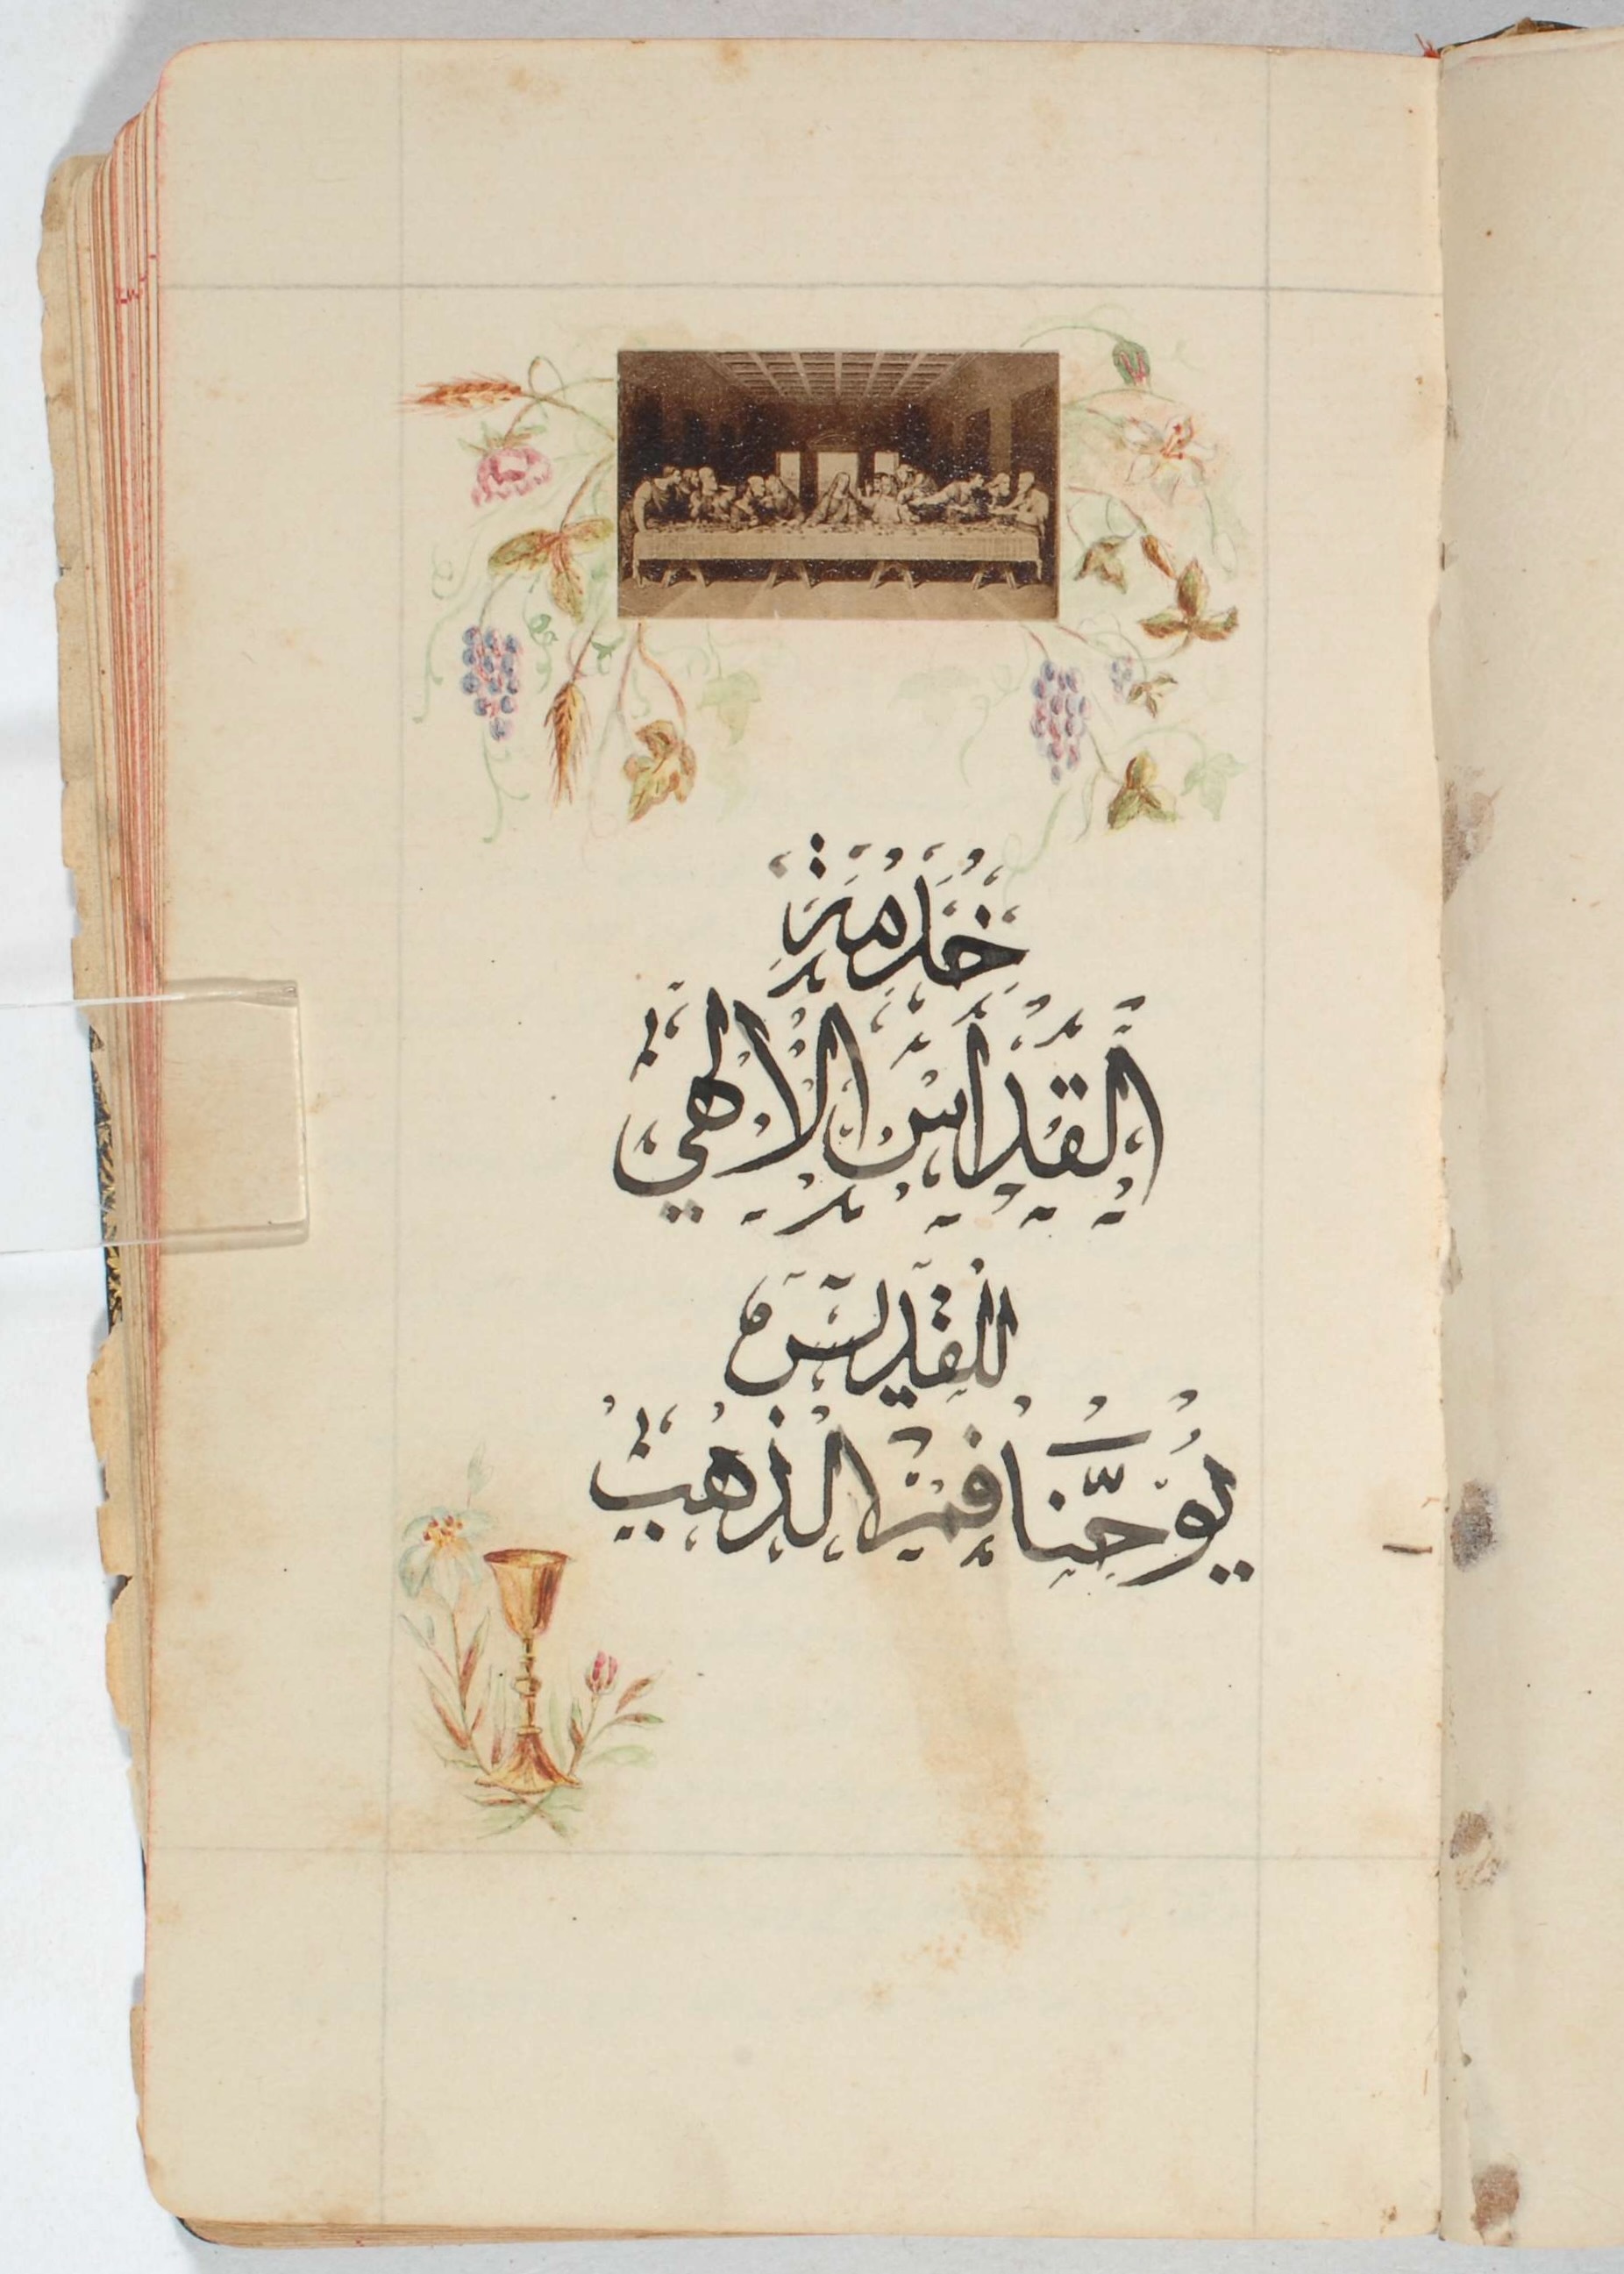 خدمة
القداس الالهي
للقديس
يوحنا فم الذهب